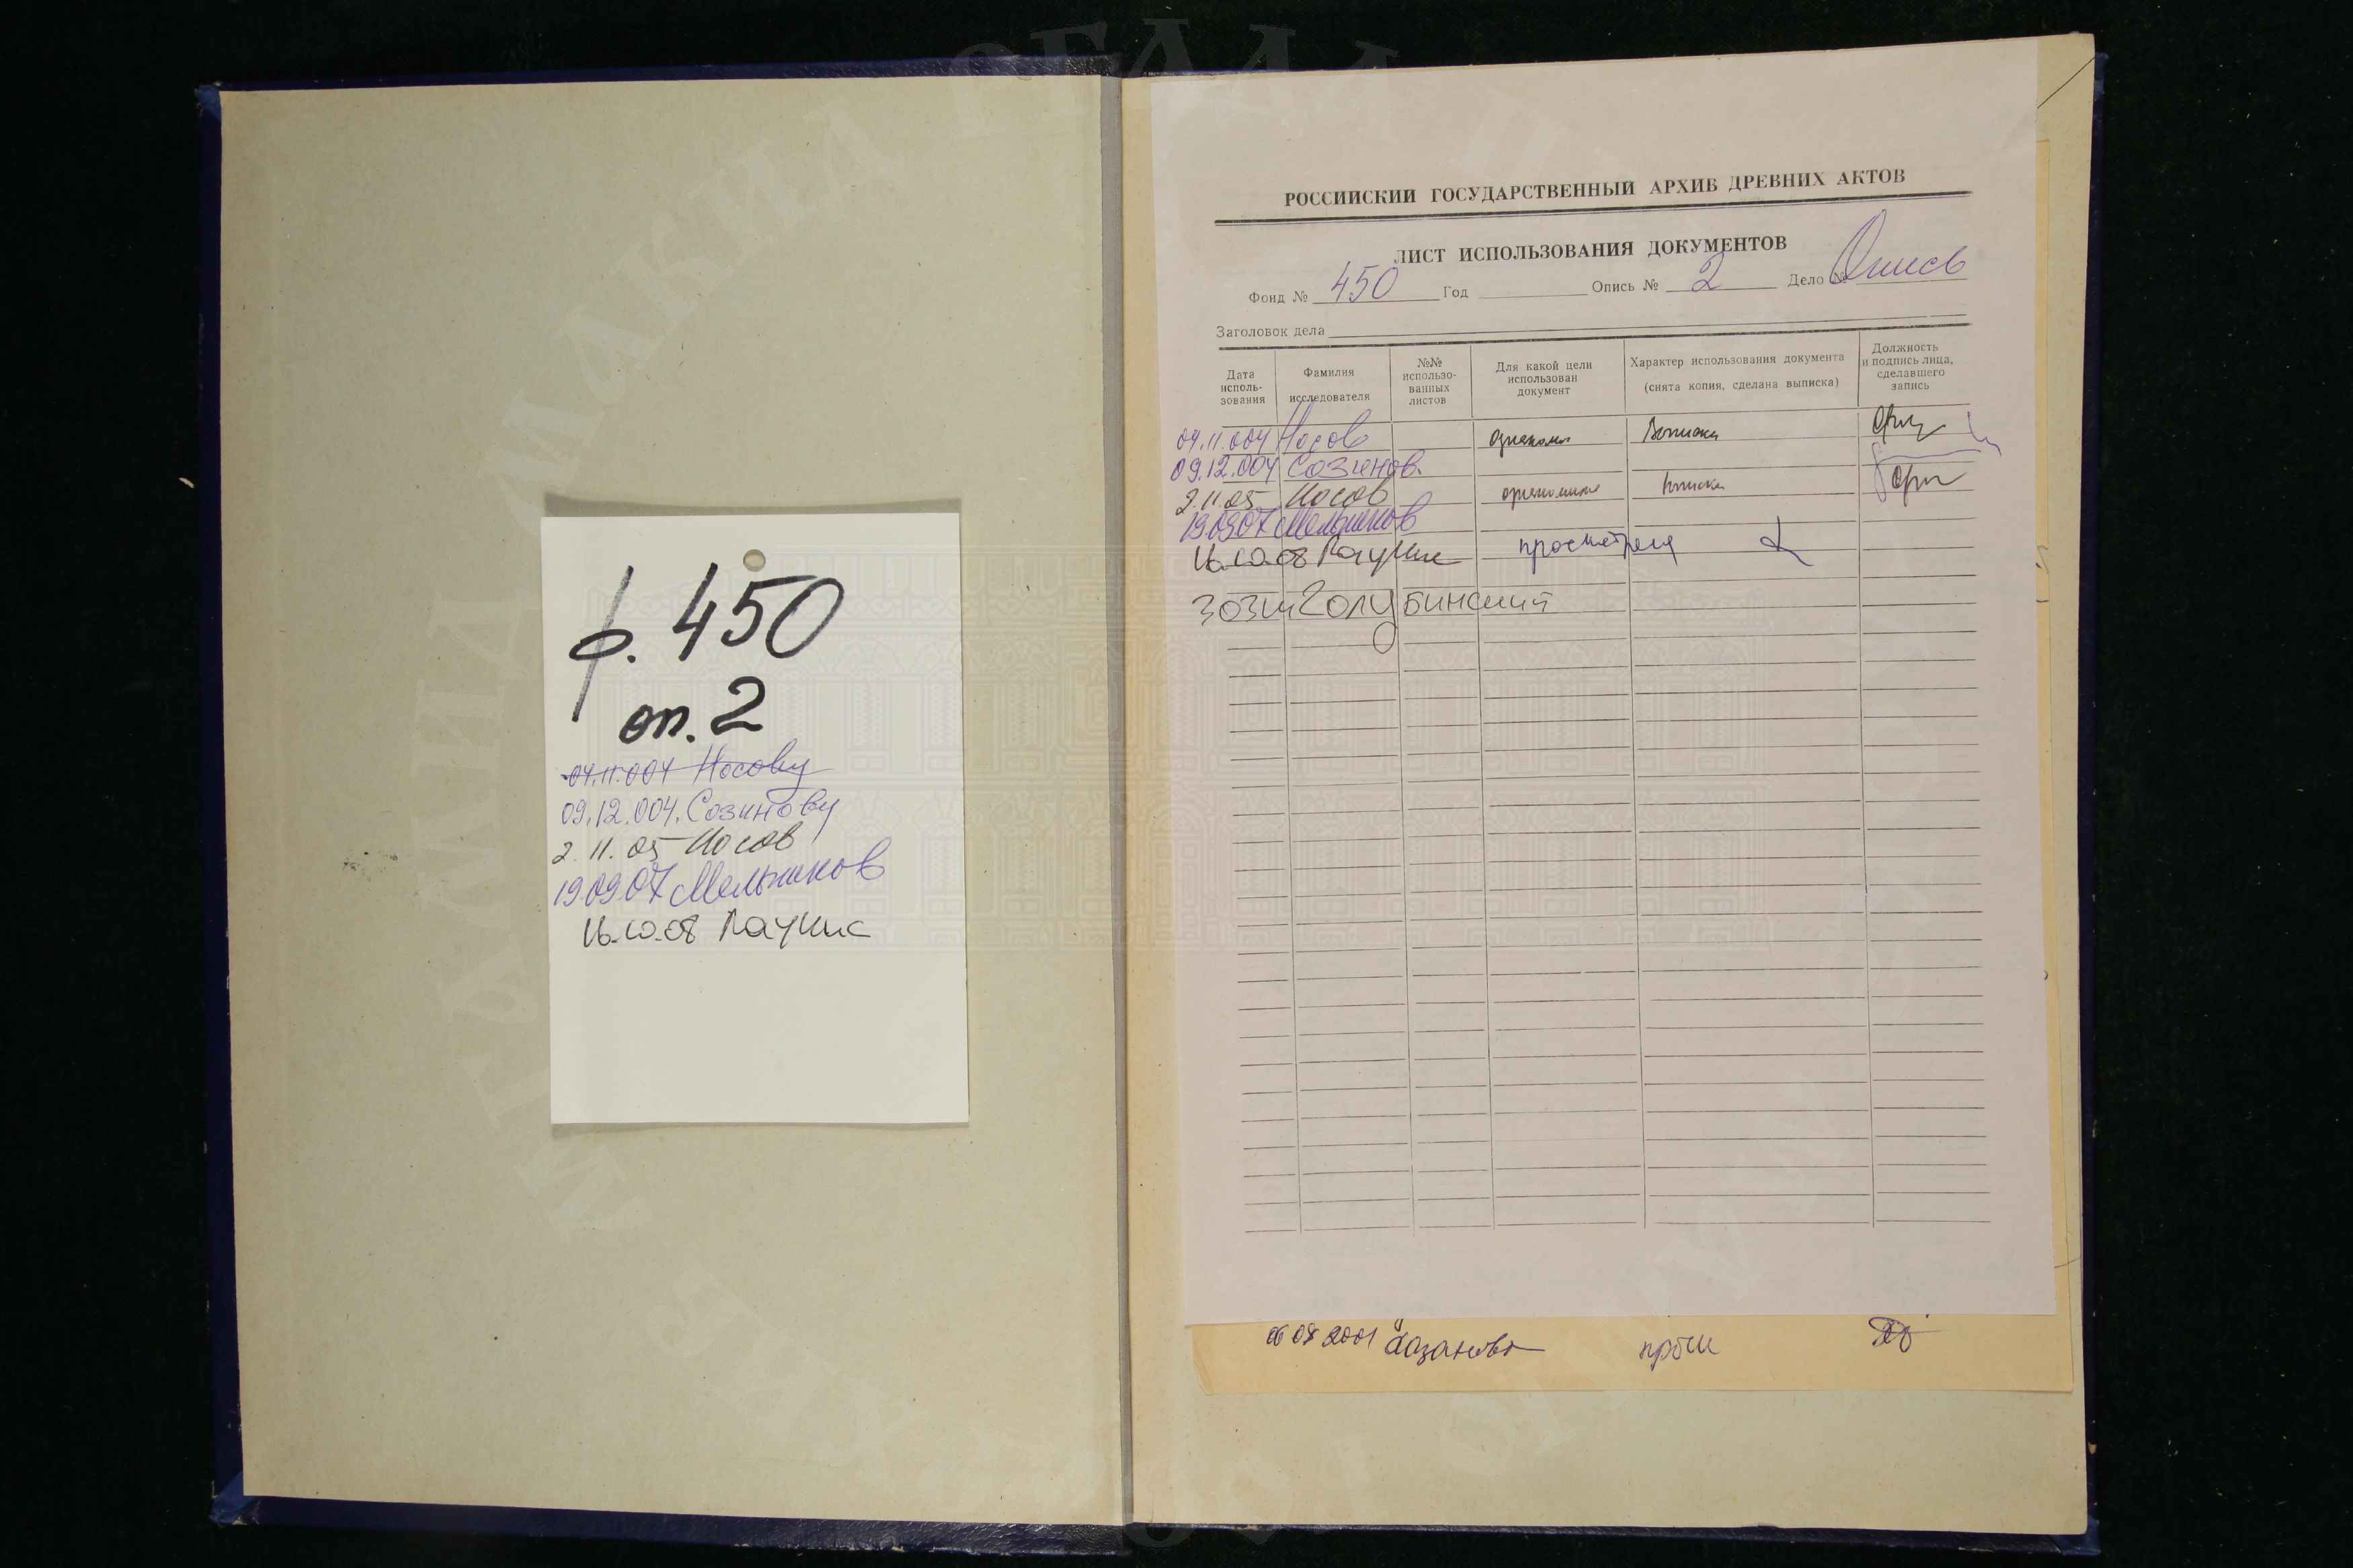 ф. 450
оп. 2
04.11.004 Носову
09.12.004. Созинову
2.11.05 Носов
19.09.07 Мельников
16.10.08
РОССИЙСКИЙ ГОСУДАРСТВЕННЫЙ АРХИВ ДРЕВНИХ АКТОВ
ЛИСТ ИСПОЛЬЗОВАНИЯ ДОКУМЕНТОВ
Фонд № 450 Год Опись № 2 Дело № Опись
Заголовок дела
Дата исполь-зования
Фамилия исследователя
№№ использо-ванных листов
Для какой цели использован документ
Характер использования документа (снята копия, сделана выписка)
Должность и подпись лица, сделавшего запись
04.11.004 Носов
09.12.004 Созинов.
2.11.05 Носов
19.09.07 Мельников
16.10.08 просмотрел
Голубинский
06 08 2001